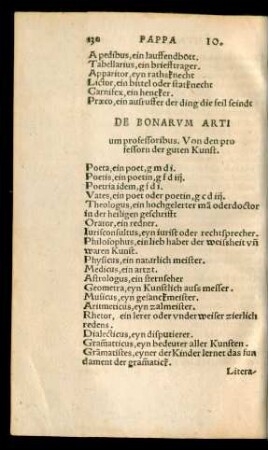 130 PAPPA IO.
A pedibus, ein lauffendbott.
Tabellarius, ein briefftrager.
Apparitor, eyn rathsknecht
Lictor, ein büttel oder stattknecht
Carnifex, ein hencker.
Præco, ein ausruffer der ding die feil seindt
DE BONARVM ARTI
um professoribus. Von den pro
fessorn der guten Kunst.
Poeta, ein poet, g m d i.
Poetis, ein poetin, g f d iij.
Poetria idem, g f d i.
Vates, ein poet oder poetin, g c d iij.
Theologus, ein hochgelerter mā oder doctor
in der heiligen geschrifft
Orator, ein redner.
Iurisconsultus, eyn iurist oder rechtsprecher.
Philosophus, ein lieb haber der weissheit vñ
waren Kunst.
Physicus, ein natürlich meister.
Medicus, ein artzt.
Astrologus, ein sternseher
Geometra, eyn Kunstlich auss messer.
Musicus, eyn gesanckmeister.
Aritmeticus, eyn zalmeister.
Rhetor, ein lerer oder vnderweiser zierlich
redens.
Dialecticus, eyn disputierer.
Grāmatticus, eyn bedeuter aller Kunsten.
Grāmatistes, eyner der Kinder lernet das fun
dament der grāmatick.
Litera-